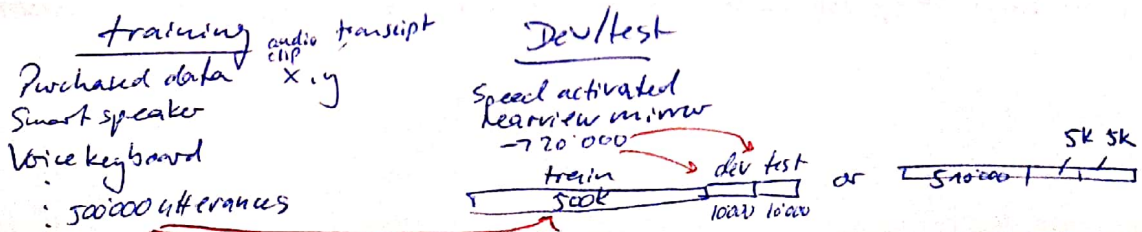 training
audio clip transcript
Purchased data x, y
Smart speaker
Voice keyboard
:
: 500'000 utterances
Dev/test
Speed activated
rearview mirror
→ 20'000
train dev test
500k
10'000 10'000
or
5k 5k
510'000